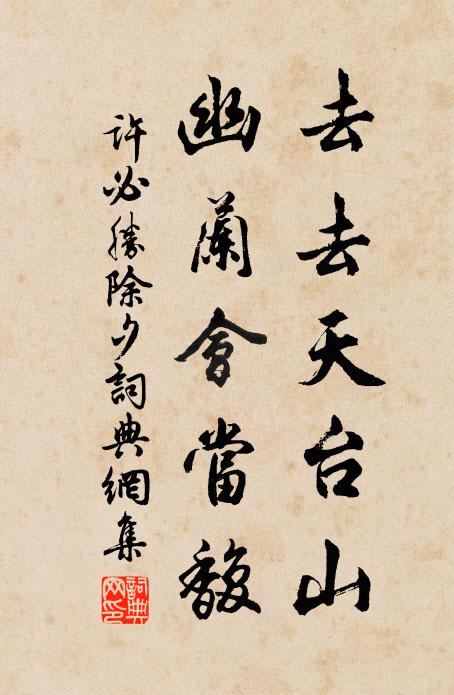 去去天台山
幽蘭會當馥
許必勝除夕詞典網集
詞典網印